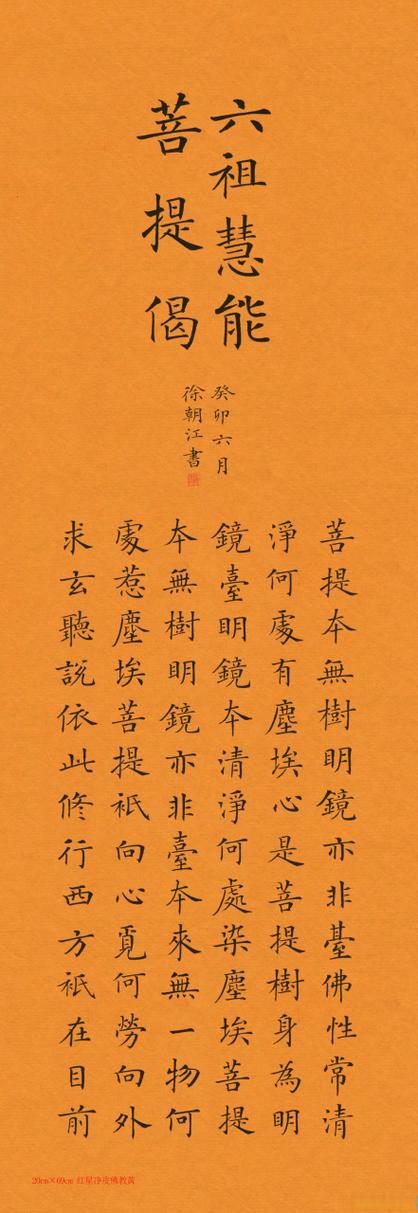 六祖慧能
菩提偈
癸卯六月
徐朝江書
菩提本無樹明鏡亦非臺佛性常清
淨何處有塵埃心是菩提樹身為明
鏡臺明鏡本清淨何處染塵埃菩提
本無樹明鏡亦非臺本來無一物何
處惹塵埃菩提祇向心覓何勞向外
求玄聽說依此修行西方祇在目前
20cm×69cm 红星净皮佛教黄